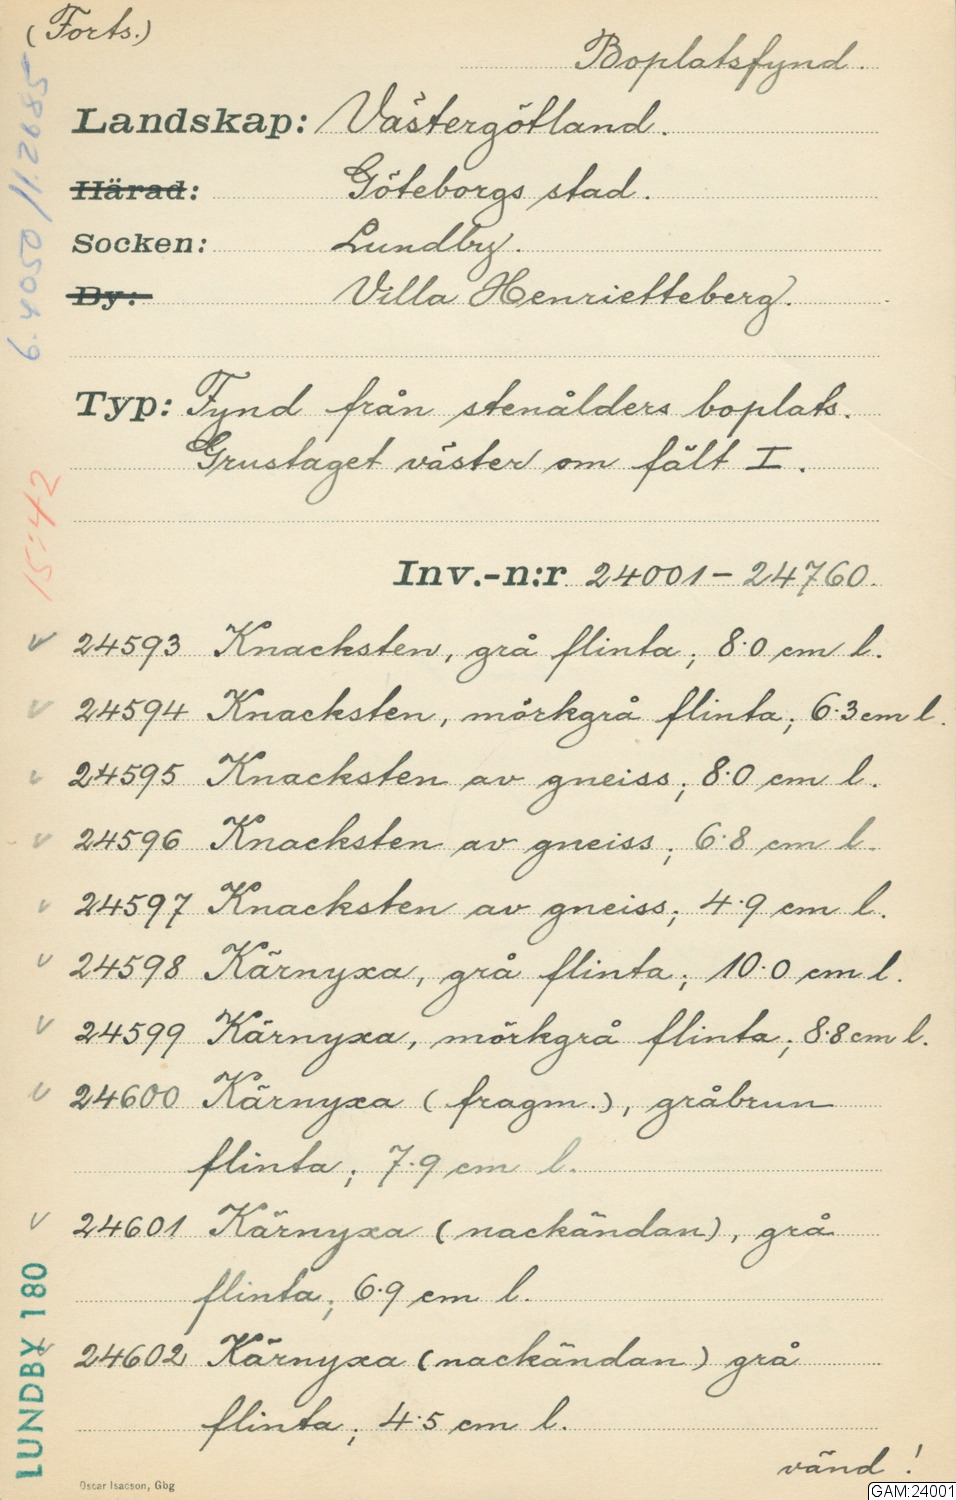 (Forts.)
Boplatsfynd.
Landskap: Västergötland.
Härad: Göteborgs stad.
Socken: Lundby.
By: Villa Henrietteberg.
Typ: Fynd från stenålders boplats.
Grustaget väster om fält I.
Inv.-n:r 24001-24760.
v 24593 Knacksten, grå flinta; 8.0 cm l.
v 24594 Knacksten, mörkgrå flinta; 6.3 cm l.
v 24595 Knacksten av gneiss; 8.0 cm l.
v 24596 Knacksten av gneiss; 6.8 cm l.
v 24597 Knacksten av gneiss; 4.9 cm l.
v 24598 Kärnyxa, grå flinta; 10.0 cm l.
v 24599 Kärnyxa, mörkgrå flinta; 8.8 cm l.
v 24600 Kärnyxa (fragm.), gråbrun
flinta; 7.9 cm l.
v 24601 Kärnyxa (nackändan), grå
flinta; 6.9 cm l.
v 24602 Kärnyxa (nackändan) grå
flinta; 4.5 cm l.
vänd!
Oscar Isacson, Gbg
GAM:24001
6.4050/11.2685
15:42
LUNDBY 180